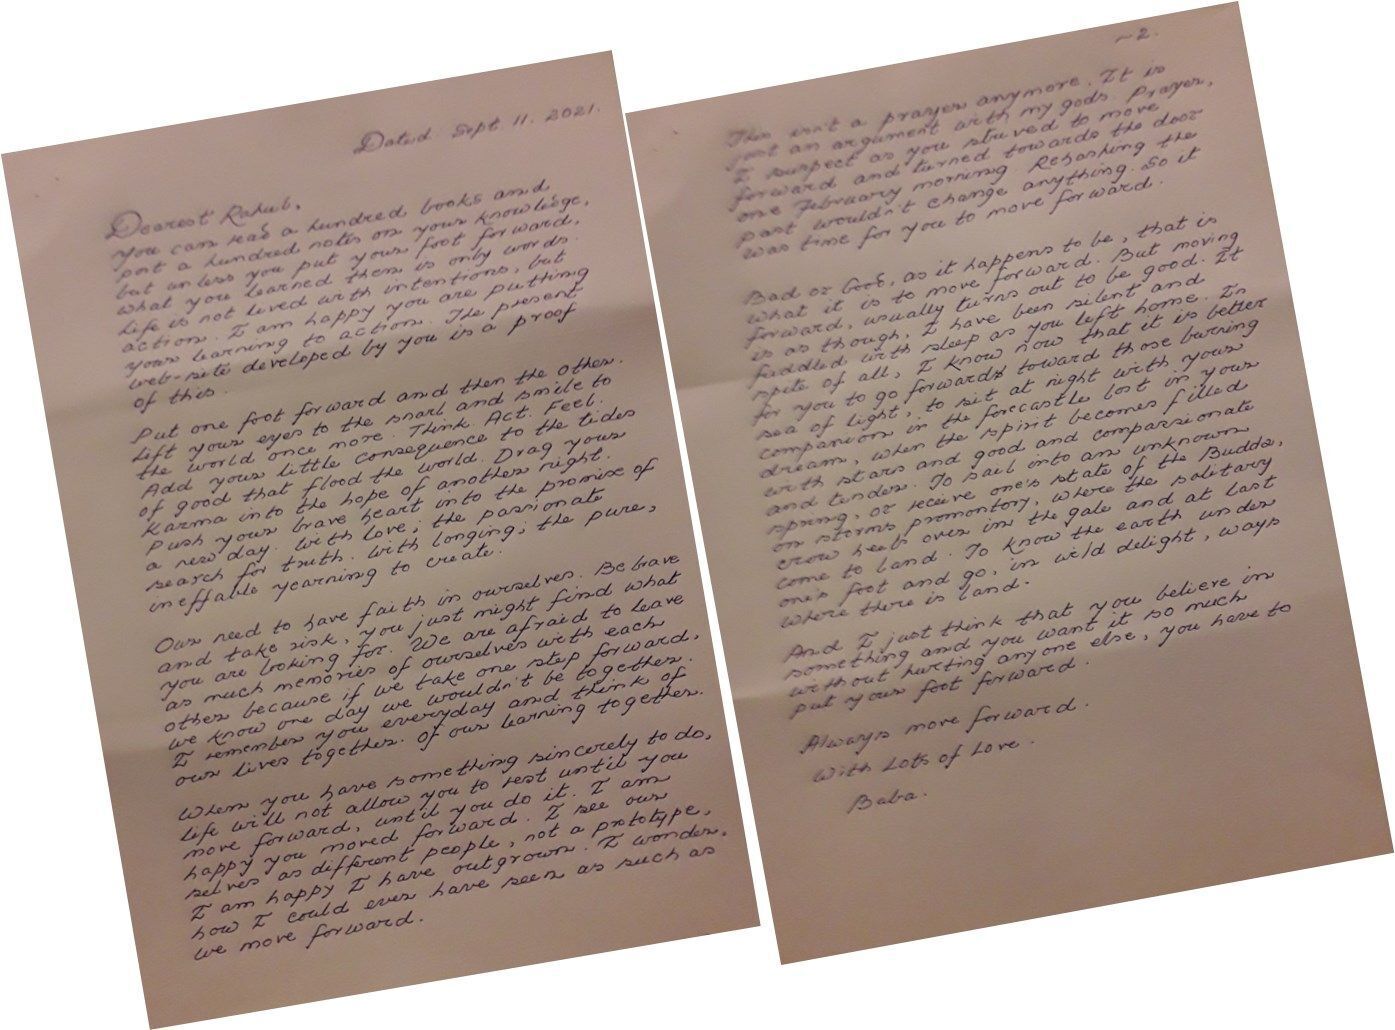 Dated. Sept. 11. 2021.
Dearest Rahul,
You can read a hundred books and
post a hundred notes on your knowledge,
but unless you put your foot forward,
what you learned then is only words.
Life is not lived with intentions, but
action. I am happy you are putting
your learning to action. The present
web-site developed by you is a proof
of this.
Put one foot forward and then the other.
Lift your eyes to the snarl and smile to
the world once more. Think. Act. Feel.
Add your little consequence to the tides
of good that flood the world. Drag your
Karma into the hope of another night.
Push your brave heart into the promise of
a new day. With love; the passionate
search for truth. With longing; the pure,
ineffable yearning to create.
Our need to have faith in ourselves. Be brave
and take risk, you just might find what
you are looking for. We are afraid to leave
as much memories of ourselves with each
other because if we take one step forward,
we know one day we wouldn't be together.
I remember you everyday and think of
our lives together. Of our learning together.
When you have something sincerely to do,
life will not allow you to rest until you
move forward, until you do it. I am
happy you moved forward. I see our
selves as different people, not a prototype.
I am happy I have outgrown. I wonder,
how I could ever have seen as such as
we move forward.
~2.
This isn't a prayer anymore. It is
just an argument with my gods. Prayer,
I suspect as you strived to move
forward and turned towards the door
one February morning. Rehashing the
past wouldn't change anything. So it
was time for you to move forward.
Bad or Good, as it happens to be, that is
what it is to move forward. But moving
forward, usually turns out to be good. It
is as though, I have been silent and
fuddled with sleep as you left home. In
spite of all, I know now that it is better
for you to go forward toward those burning
sea of light, to sit at night with your
companion in the forecastle lost in your
dream, when the spirit becomes filled
with stars and good and compassionate
and tender. To sail into an unknown
spring, or receive one's state of the Buddha,
on storms promontory, where the solitary
crow heels over in the gale and at last
come to land. To know the earth under
one's foot and go, in wild delight, ways
where there is land.
And I just think that you believe in
something and you want it so much
without hurting anyone else, you have to
put your foot forward.
Always move forward.
With Lots of Love.
Baba.